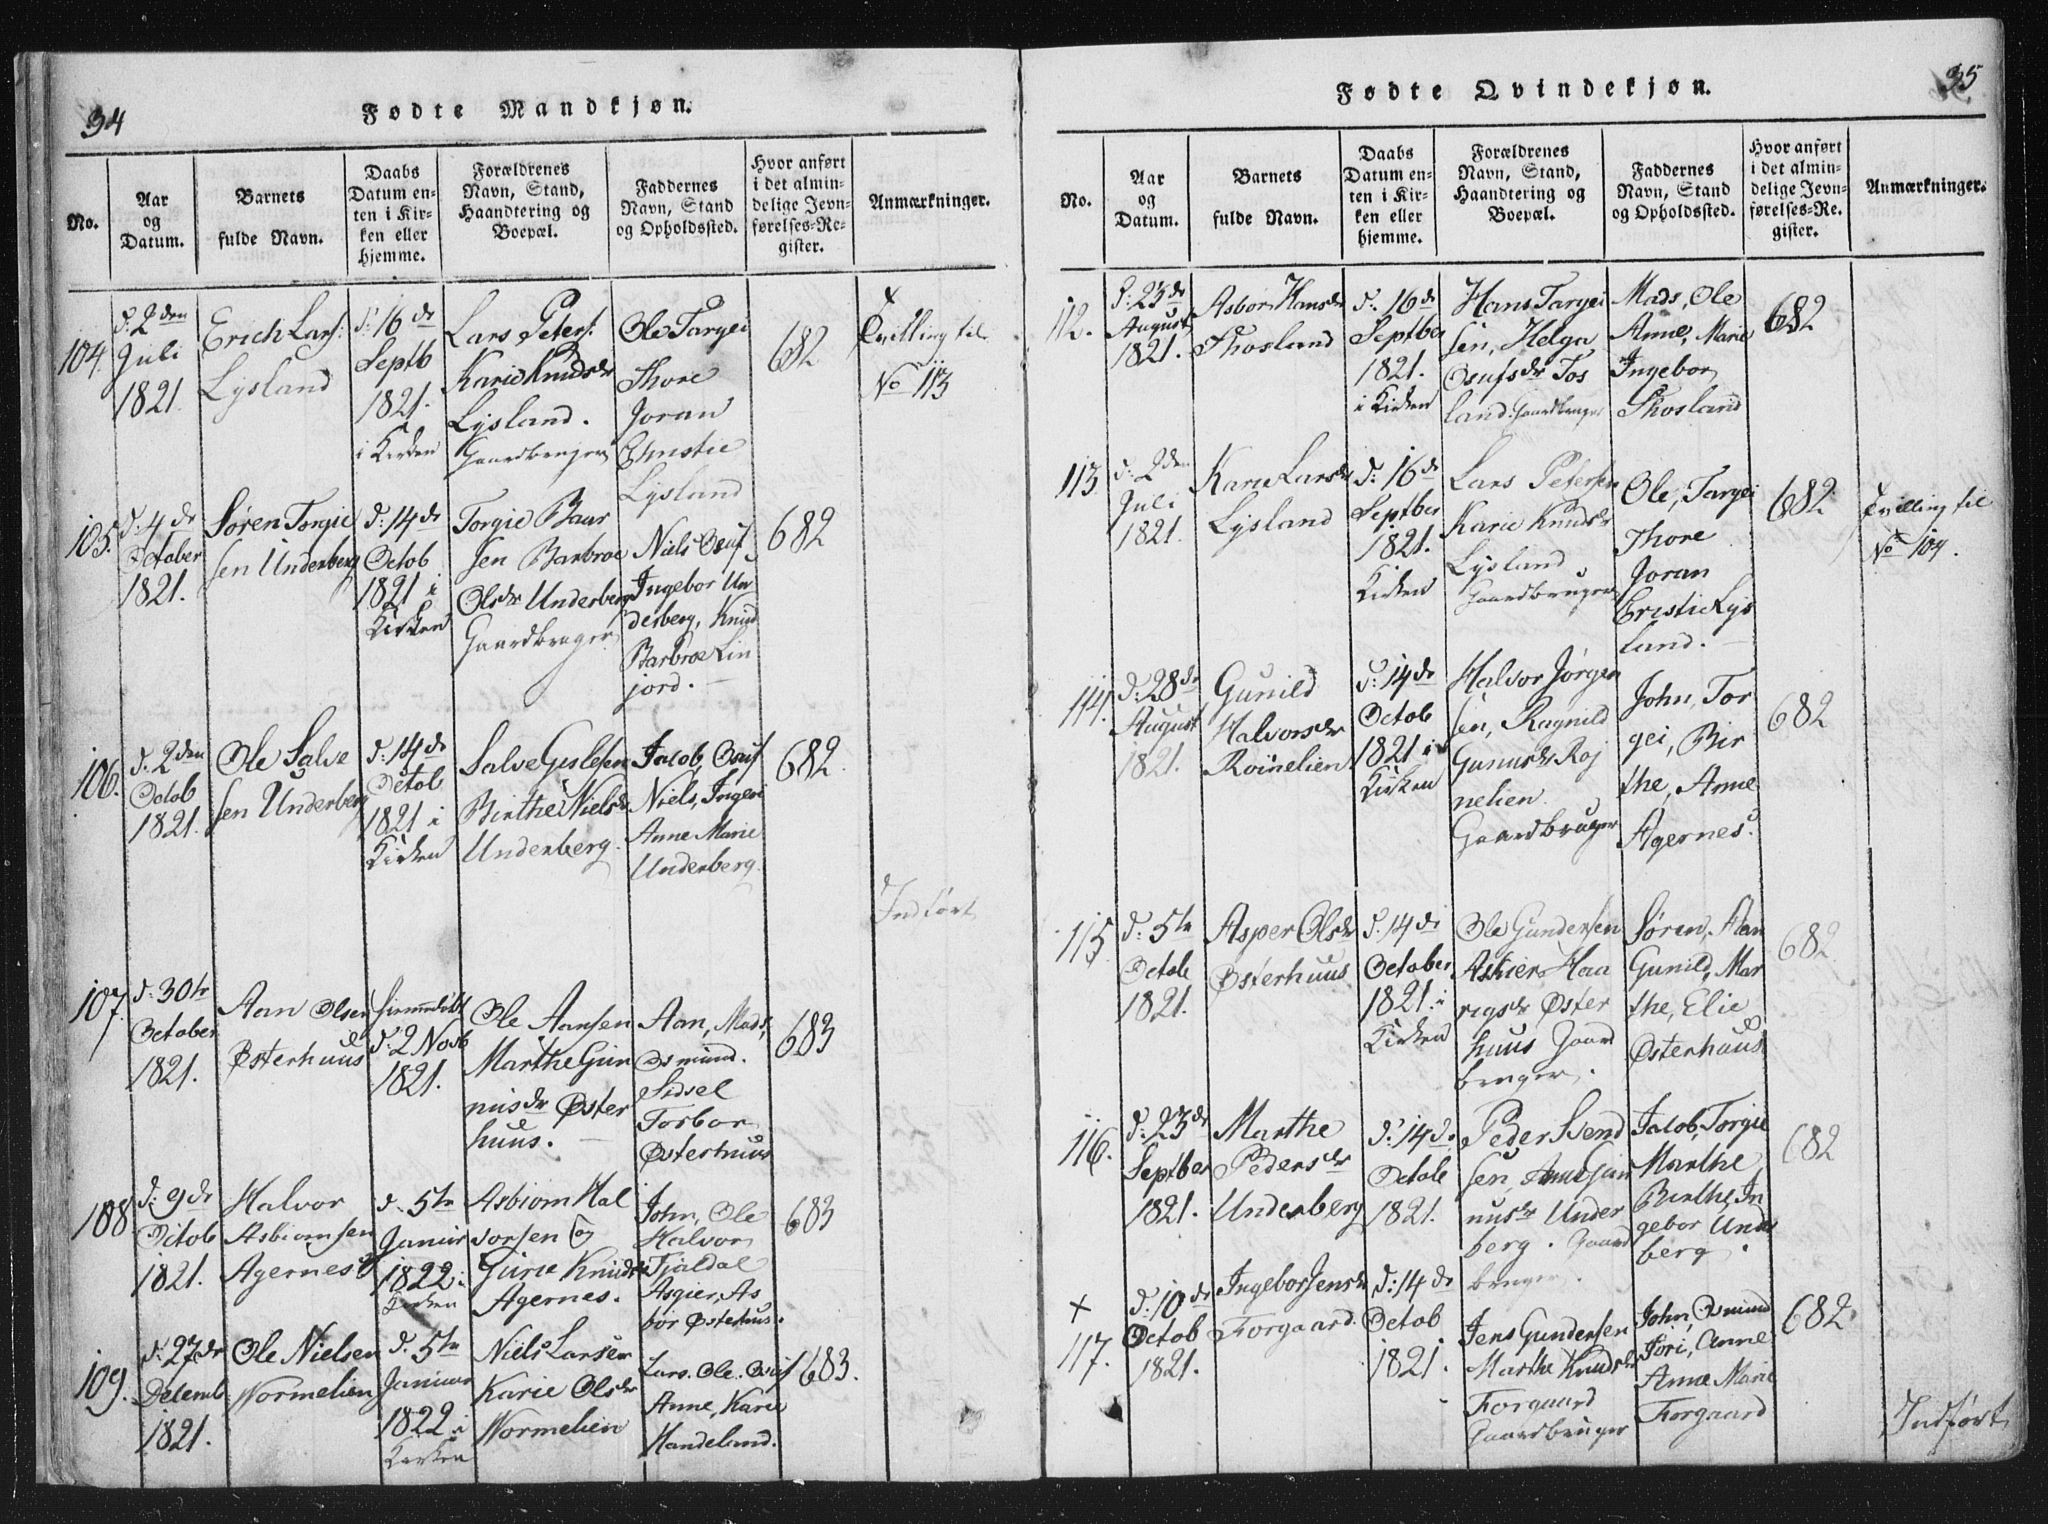 34
Fødte Mandkjøn.
No.
Aar
og
Datum.
Barnets
fulde Navn.
Daabs
Datum en-
ten i Kir-
ken eller
hjemme.
Forældrenes
Navn, Stand,
Haandtering og
Boepæl.
Faddernes
Navn, Stand
og Opholdssted.
Hvor anført
i det almin-
delige Jevn-
førelses-Re-
gister.
Anmærkninger.
104.
d: 2den
Juli
1821.
Erich Lars:
Lysland
d: 16de
Septb
1821.
i Kirken
Lars Peters:
Karie Knudsdr
Lysland.
Gaardbruger
Ole Targei
Thore
Joran
Christie
Lysland
682
Tvilling til
No 113
105.
d: 4de
October
1821.
Søren Torgie
sen Underberg
d: 14de
Octob
1821 i
Kirken
Torgie Baar
sen Barbroe
Olsdr Underberg
Gaardbruger
Niels Osuf
Ingebor Un
derberg, Knud
Barbroe Lin
jord.
682
106.
d: 2den
Octob
1821.
Ole Salve
sen Underberg
d: 14de
Octob
1821 i
Kirken
Salve Gislesen
Birthe Nielsdr
Underberg.
Jacob, Osuf
Niels, Ingeri
Anne Marie
Underberg.
682.
Indført
107.
d: 30te
October
1821.
Aan Olsen
Østerhuus
hiemmedøbt
d: 2 Novb
1821.
Ole Aansen
Marthe Gun
nusdr Øster
huus.
Aan, Mads,
Osmund.
Sidsel
Torbor
Østerhuus
683
108
d: 9de
Octob
1821.
Halvor
Asbiornsen
Agernes
d. 5te
Januar
1822 i
Kirken
Asbiorn Hal
vorsen og
Gurie Knudsdr
Agernes.
John, Ole
Halvor
Fjaldal
Asgier, As
bor Østerhus.
683
109.
d: 27de
Decemb
1821.
Ole Nielsen
Wormelien
d. 5te
Januar
1822 i
Kirken
Niels Larsen
Karie Olsdr
Wormelien
Lars. Ole. Osuf
Anne, Karie
Handeland.
683.
35
Fødte Qvindekjøn.
No.
Aar
og
Datum.
Barnets
fulde Navn.
Daabs
Datum en-
ten i Kir-
ken eller
hjemme.
Forældrenes
Navn, Stand,
Haandtering og
Boepæl.
Faddernes
Navn, Stand
og Opholdssted.
Hvor anført
i det almin-
delige Jevn-
førelses-Re-
gister.
Anmærkninger.
112.
d: 23de
August
1821.
Asbor Hansdr
Thosland
d: 16de
Septber
1821.
i Kirken
Hans Targei
sen, Helga
Osufsdr Tos
land. Gaardbruger
Mads, Ole
Anne, Marie
Ingebor
Thosland
682
113.
d: 2den
Juli
1821.
Karie Larsdr
Lysland
d: 16de
Septber
1821.
Kirken
Lars Petersen
Karie Knudsdr
Lysland
Gaardbruger
Ole, Targei
Thore
Joran
Cristie Lys
land.
682
Tvilling til
No 104.
114.
d: 28de
August
1821.
Gunild
Halvorsdr
Roinelien
d: 14de
Octob
1821 i
Kirken
Halvor Jørgen
sen, Ragnild
Gunusdr Roj
nelien.
Gaardbruger
John, Tor
gei, Bir
the, Anne
Agernes.
682
115
d. 5te
Octob
1821.
Asper Olsdr
Østerhuus
d. 14de
October
1821. i
Kirken
Ole Gundersen
Askier Haa
rigsdr Øster
huus Gaard
bruger.
Søren, Aan
Gunild, Mar
the, Elie
Østerhuus
682
116.
d: 23de
Septber
1821.
Marthe
Pedersdr
Underberg
d. 14de
Octob
1821.
Peder Svend
sen, Anne Gun
nusdr Under
berg. Gaard
bruger.
Jacob, Torgie
Marthe
Birthe, In
gebor Under
berg.
682
117.
d. 10de
Octob
1821.
Ingebor Jensdr
Forgaard.
d: 14de
Octob
1821.
Jens Gundersen
Marthe Knudsdr
Forgaard
Gaardbruger
John, Osmund
Jori, Anne
Anne Marie
Forgaard
682.
Indført